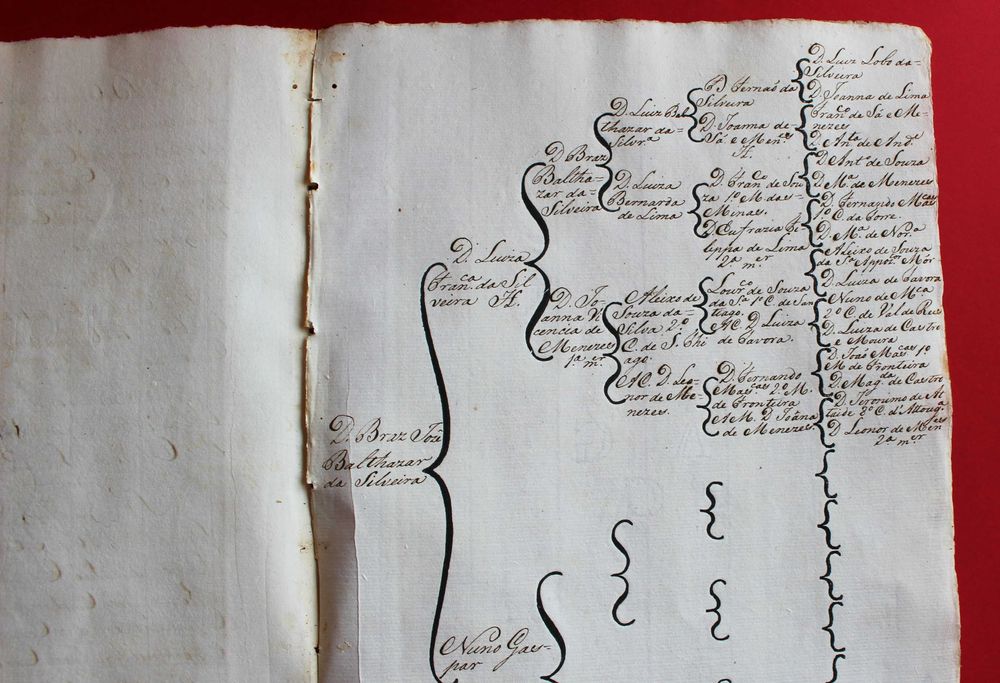 D. Braz Jozé
Balthazar
da Silveira
D. Luiza
Fran.ca da Sil
veira H.
Nuno Gas-
par
D. Braz
Baltha-
zar da-
Silveira
D. Joanna Vi
cencia de
Menezes
1.a m.er
D. Luiz Bal
thazar da-
Silv.ra
D. Luiza
Bernarda
de Lima
Aleixo de
Souza da-
Silva 2.o
C. de S. Thi
ago.
A C. D. Leo-
nor de Me-
nezes.
D. Fernaõ da
Silveira
D. Joanna de-
Sá e Men.es
H.
D. Fran.co de Sou
za 1.o M. das-
Minas.
D. Eufrazia Fe
lippa de Lima
2.a m.er
Lour.co de Souza
da S.a 1.o C. de San
tiago.
A C. D. Luiza
de Tavora.
D. Fernando
Mas.cas 2.o M.
de Fronteira
A M. D. Joana
de Menezes.
D. Luiz Lobo da-
Silveira
D. Joanna de Lima
Fran.co de Sá e Me-
nezes
D. Ant.a de And.e
D. Ant.o de Souza
D. M.a de Menezes
D. Fernando Mas.cas
1.o C. da Torre.
D. M.a de Nor.a
Aleixo de Souza
da S.a Appoz.or Mór
D. Luiza de Tavora
Nuno de M.ca
2.o C. de Val de Reis
D. Luiza de Castro
e Moura
D. Joaõ Mas.cas 1.o
M. de Fronteira
D. Mag.da de Castro
D. Jeronimo de At
taide 8.o C. d'Attoug.a
D. Leonor de Men.es
2.a m.er